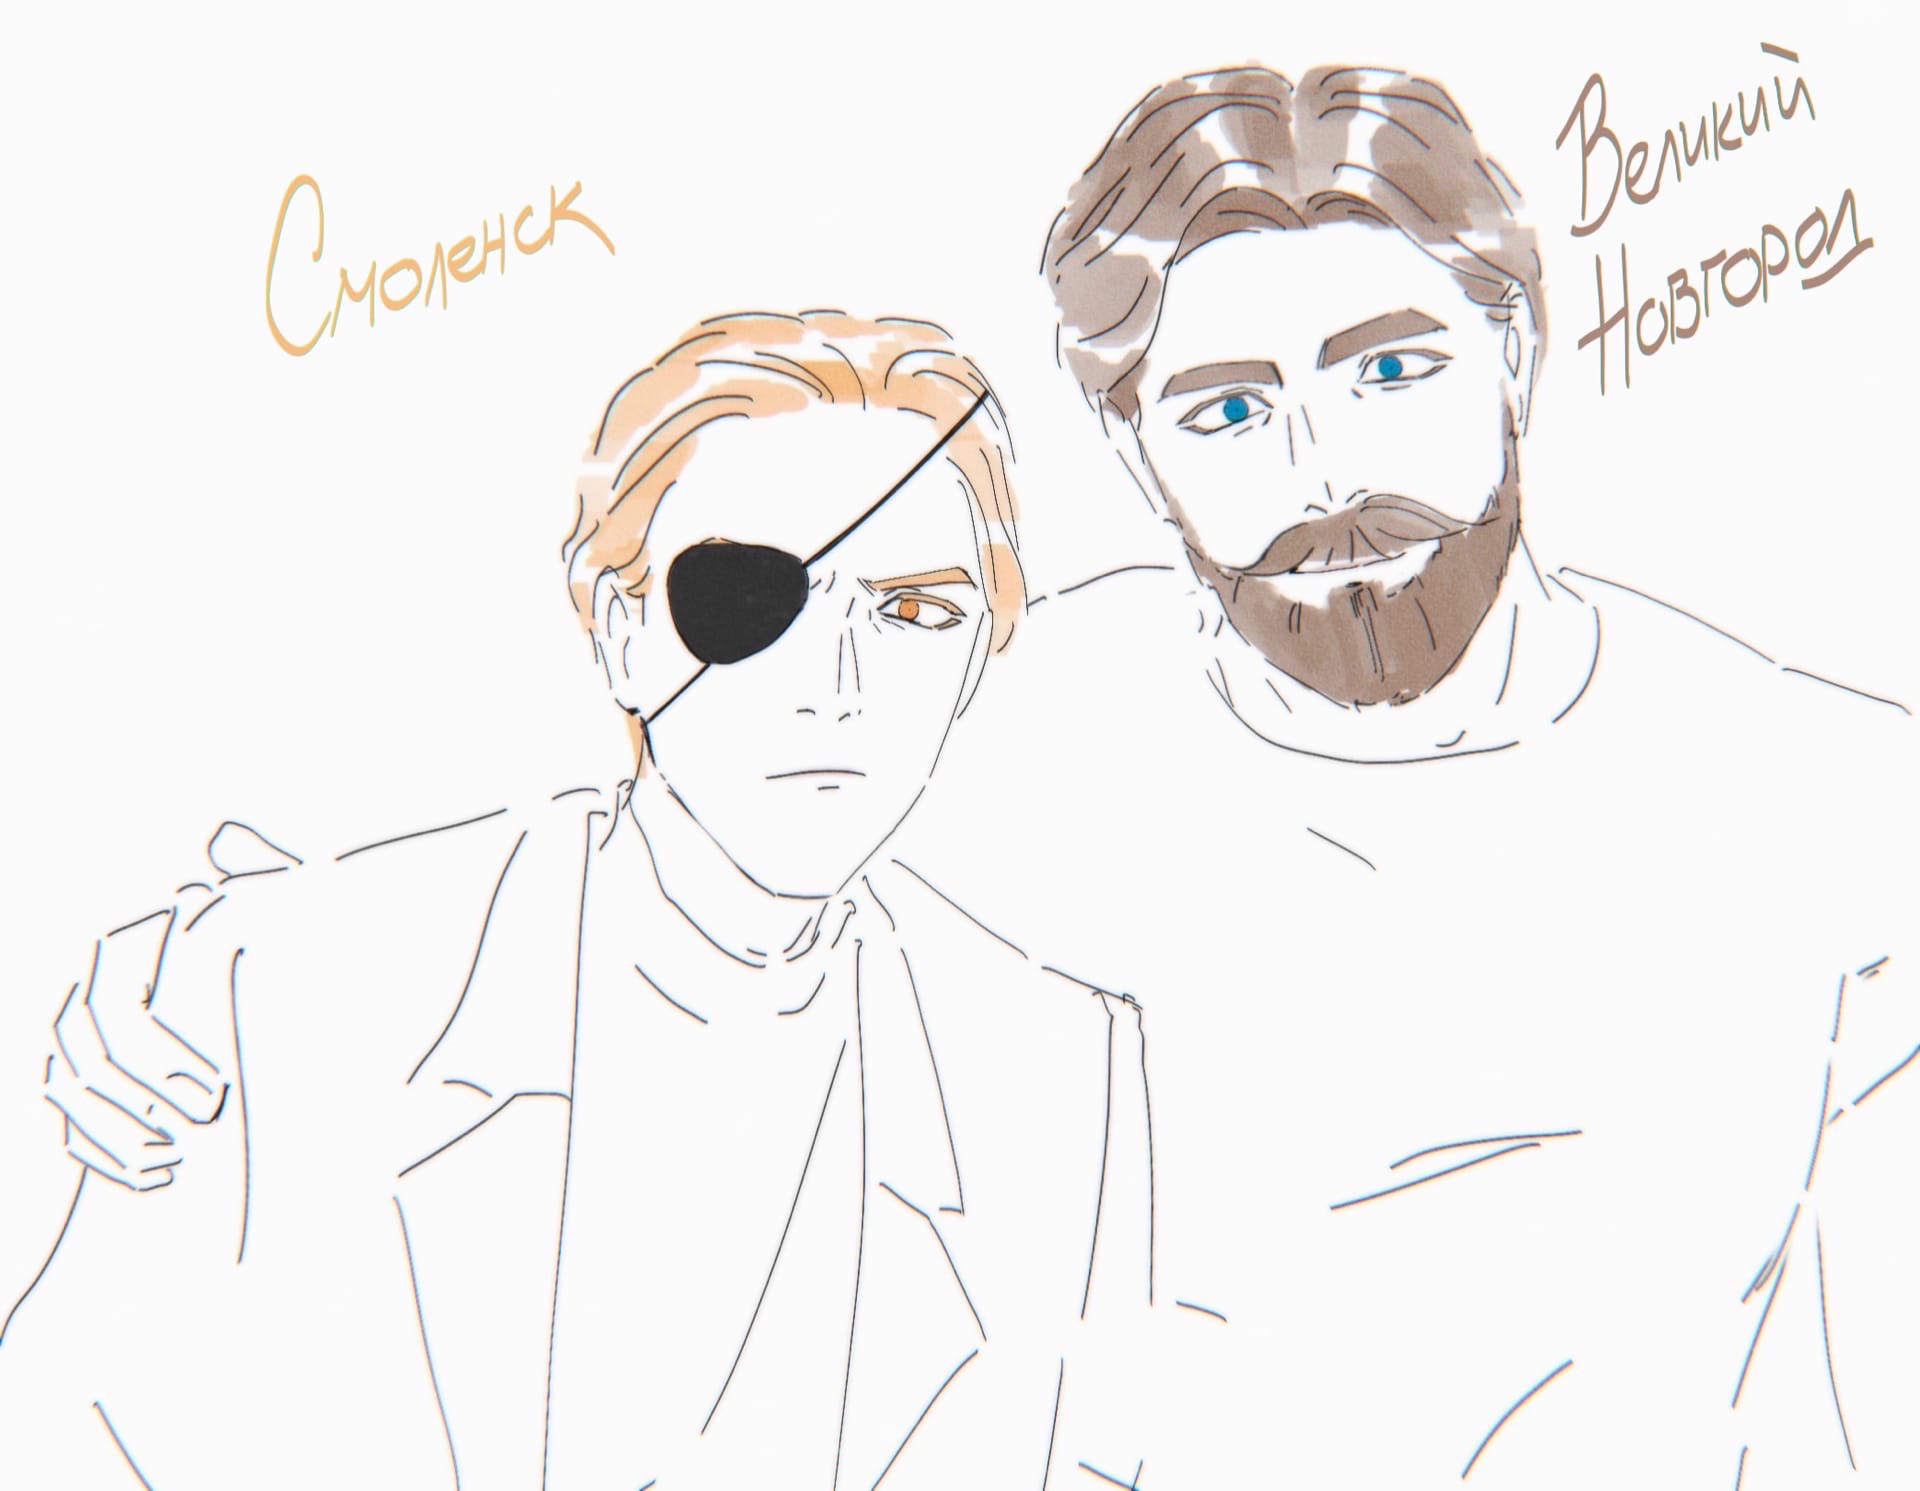 Смоленск
Великий
Новгород